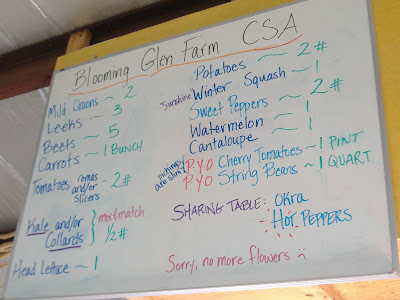 Blooming Glen Farm CSA
Mild Onions ~ 2
Leeks ~ 3
Beets ~ 5
Carrots ~ 1 BUNCH
Tomatoes romas and/or Slicers ~ 2#
Kale and/or Collards } mix & match 1/2 #
Head lettuce ~ 1
Potatoes ~ 2 #
"Sunshine" Winter Squash ~ 1
Sweet Peppers ~ 2 #
Watermelon ~ 1
Cantaloupe ~ 1
pickings are slim! { PYO Cherry Tomatoes ~ 1 PINT
PYO String Beans ~ 1 QUART
SHARING TABLE: OKra
Hot PEPPERS
Sorry, no more flowers :(